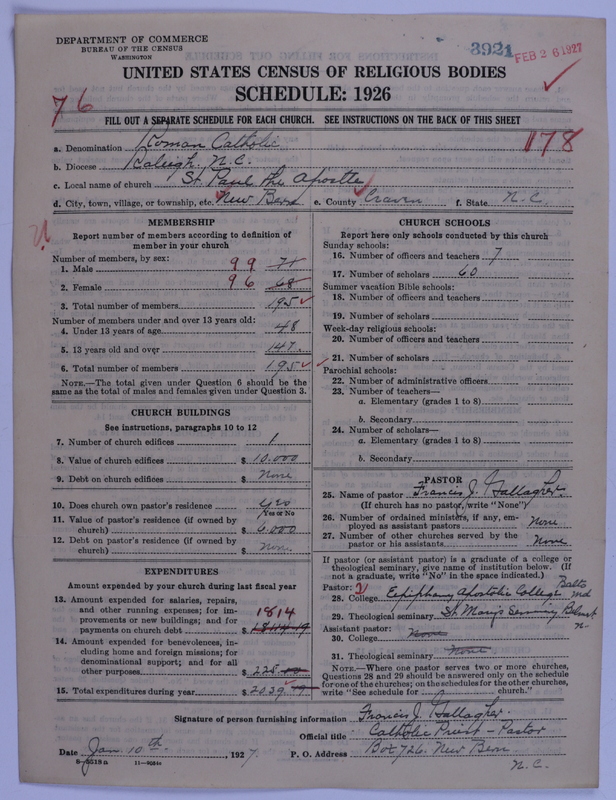 DEPARTMENT OF COMMERCE
BUREAU OF THE CENSUS
WASHINGTON
3921
FEB 26 1927
UNITED STATES CENSUS OF RELIGIOUS BODIES
SCHEDULE: 1926
76
FILL OUT A SEPARATE SCHEDULE FOR EACH CHURCH. SEE INSTRUCTIONS ON THE BACK OF THIS SHEET
178
a. Denomination Roman Catholic
b. Diocese Raleigh, N.C.
c. Local name of church St. Paul the Apostle
d. City, town, village, or township, etc. New Bern e. County Craven f. State N.C.
MEMBERSHIP
Report number of members according to definition of
member in your church
Number of members, by sex:
1. Male 99 71
2. Female 96 68
3. Total number of members 195
Number of members under and over 13 years old:
4. Under 13 years of age 48
5. 13 years old and over 147
6. Total number of members 195
NOTE.—The total given under Question 6 should be the
same as the total of males and females given under Question 3.
CHURCH BUILDINGS
See instructions, paragraphs 10 to 12
7. Number of church edifices 1
8. Value of church edifices $ 10.000
9. Debt on church edifices $ None
10. Does church own pastor's residence yes
Yes or No
11. Value of pastor's residence (if owned by
church) $ 6.000
12. Debt on pastor's residence (if owned by
church) $ Non.
EXPENDITURES
Amount expended by your church during last fiscal year
13. Amount expended for salaries, repairs,
and other running expenses; for im-
provements or new buildings; and for
payments on church debt $ 1814
14. Amount expended for benevolences, in-
cluding home and foreign missions; for
denominational support; and for all
other purposes $ 225
15. Total expenditures during year $ 2039
CHURCH SCHOOLS
Report here only schools conducted by this church
Sunday schools:
16. Number of officers and teachers 7
17. Number of scholars 60
Summer vacation Bible schools:
18. Number of officers and teachers
19. Number of scholars
Week-day religious schools:
20. Number of officers and teachers
21. Number of scholars
Parochial schools:
22. Number of administrative officers
23. Number of teachers—
a. Elementary (grades 1 to 8)
b. Secondary
24. Number of scholars—
a. Elementary (grades 1 to 8)
b. Secondary
PASTOR
25. Name of pastor Francis J. Gallagher
(If church has no pastor, write "None")
26. Number of ordained ministers, if any, em-
ployed as assistant pastors None
27. Number of other churches served by the
pastor or his assistants None
If pastor (or assistant pastor) is a graduate of a college or
theological seminary, give name of institution below. (If
not a graduate, write "No" in the space indicated.)
Pastor: 2
28. College Epiphany Apostolic College Balto Md
29. Theological seminary St. Mary's Seminary
Assistant pastor:
30. College None
31. Theological seminary None
NOTE.—Where one pastor serves two or more churches,
Questions 28 and 29 should be answered only on the schedule
for one of the churches; on the schedules for the other churches,
write "See schedule for church."
Signature of person furnishing information Francis J. Gallagher
Official title Catholic Priest - Pastor
Date Jan 10th 1927. P. O. Address Box 726. New Bern
N.C.
8-5518a 11-9024a